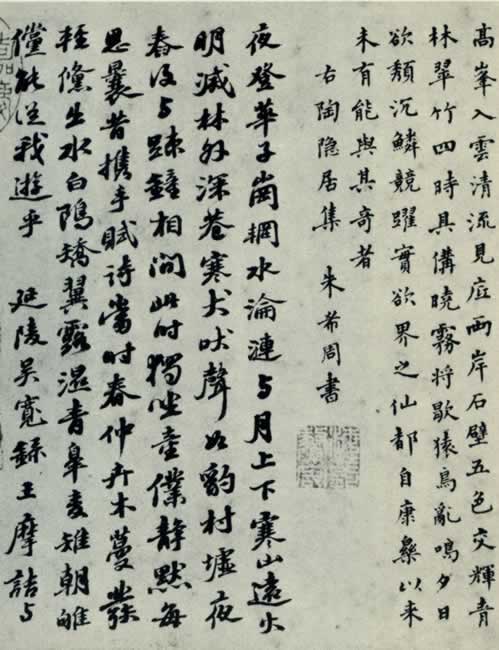 高峯入雲清流見底兩岸石壁五色交輝青
林翠竹四時具備曉霧將歇猿鳥亂鳴夕日
欲頹沉鱗競躍實欲界之仙都自康樂以来
未有能與其奇者
右陶隐居集 朱希周書
夜登華子崗輞水淪漣与月上下寒山遠火
明滅林外深巷寒犬吠聲如豹村墟夜
舂復与踈鐘相間此时獨坐童僕静默每
思曩昔携手賦诗當时春仲卉木蔓發
輕鯈出水白鷗矯翼露濕青皋麦雉朝雊
儻能從我遊乎 延陵吴寬錄王摩詰与